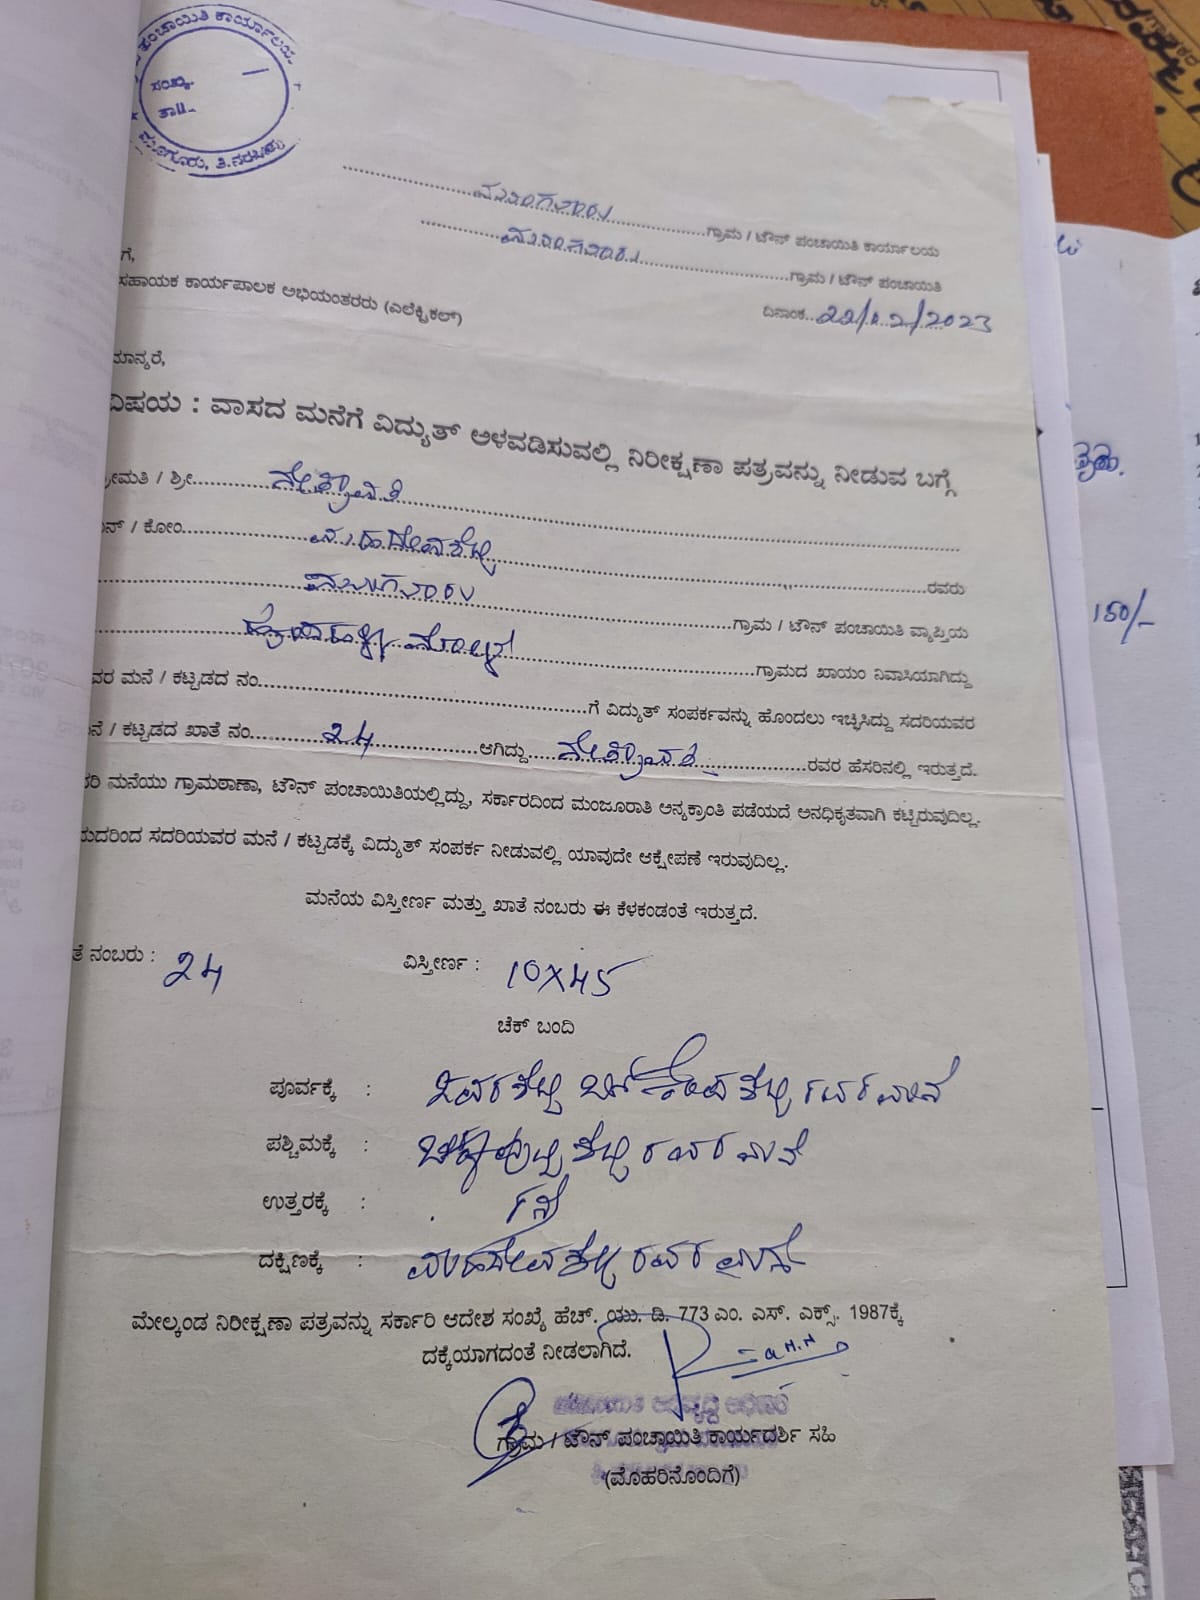 ಪಂಚಾಯಿತಿ ಕಾರ್ಯಾಲಯ
ಸಂಖ್ಯೆ
ತಾ॥
ಮೂಗೂರು, ತಿ.ನರಸೀಪುರ
ಗ್ರಾಮ / ಟೌನ್ ಪಂಚಾಯಿತಿ ಕಾರ್ಯಾಲಯ
ಗ್ರಾಮ / ಟೌನ್ ಪಂಚಾಯಿತಿ
ಗೆ,
ದಿನಾಂಕ 22/02/2023
ಸಹಾಯಕ ಕಾರ್ಯಪಾಲಕ ಅಭಿಯಂತರರು (ಎಲೆಕ್ಟ್ರಿಕಲ್)
ಮಾನ್ಯರೆ,
ವಿಷಯ : ವಾಸದ ಮನೆಗೆ ವಿದ್ಯುತ್ ಅಳವಡಿಸುವಲ್ಲಿ ನಿರೀಕ್ಷಣಾ ಪತ್ರವನ್ನು ನೀಡುವ ಬಗ್ಗೆ
ಶ್ರೀಮತಿ / ಶ್ರೀ ನೇತ್ರಾವತಿ
ನ್ / ಕೋಂ ಮಹದೇವಶೆಟ್ಟಿ ರವರು
ಗ್ರಾಮ / ಟೌನ್ ಪಂಚಾಯಿತಿ ವ್ಯಾಪ್ತಿಯ
ಗ್ರಾಮದ ಖಾಯಂ ನಿವಾಸಿಯಾಗಿದ್ದು
ವರ ಮನೆ / ಕಟ್ಟಡದ ನಂ ಗೆ ವಿದ್ಯುತ್ ಸಂಪರ್ಕವನ್ನು ಹೊಂದಲು ಇಚ್ಛಿಸಿದ್ದು ಸದರಿಯವರ
ನೆ / ಕಟ್ಟಡದ ಖಾತೆ ನಂ 24 ಆಗಿದ್ದು ನೇತ್ರಾವತಿ ರವರ ಹೆಸರಿನಲ್ಲಿ ಇರುತ್ತದೆ.
ರಿ ಮನೆಯು ಗ್ರಾಮಠಾಣಾ, ಟೌನ್ ಪಂಚಾಯಿತಿಯಲ್ಲಿದ್ದು, ಸರ್ಕಾರದಿಂದ ಮಂಜೂರಾತಿ ಅನ್ಯಕ್ರಾಂತಿ ಪಡೆಯದೆ ಅನಧಿಕೃತವಾಗಿ ಕಟ್ಟಿರುವುದಿಲ್ಲ.
ುದರಿಂದ ಸದರಿಯವರ ಮನೆ / ಕಟ್ಟಡಕ್ಕೆ ವಿದ್ಯುತ್ ಸಂಪರ್ಕ ನೀಡುವಲ್ಲಿ ಯಾವುದೇ ಆಕ್ಷೇಪಣೆ ಇರುವುದಿಲ್ಲ.
ಮನೆಯ ವಿಸ್ತೀರ್ಣ ಮತ್ತು ಖಾತೆ ನಂಬರು ಈ ಕೆಳಕಂಡಂತೆ ಇರುತ್ತದೆ.
ತೆ ನಂಬರು : 24 ವಿಸ್ತೀರ್ಣ : 10X45
ಚೆಕ್ ಬಂದಿ
ಪೂರ್ವಕ್ಕೆ :
ಪಶ್ಚಿಮಕ್ಕೆ :
ಉತ್ತರಕ್ಕೆ : ರಸ್ತೆ
ದಕ್ಷಿಣಕ್ಕೆ : ಮಹದೇವಶೆಟ್ಟಿ ರವರ
ಮೇಲ್ಕಂಡ ನಿರೀಕ್ಷಣಾ ಪತ್ರವನ್ನು ಸರ್ಕಾರಿ ಆದೇಶ ಸಂಖ್ಯೆ ಹೆಚ್. ಯು. ಡಿ. 773 ಎಂ. ಎಸ್. ಎಕ್ಸ್. 1987ಕ್ಕೆ
ದಕ್ಕೆಯಾಗದಂತೆ ನೀಡಲಾಗಿದೆ.
ಗ್ರಾಮ / ಟೌನ್ ಪಂಚಾಯಿತಿ ಕಾರ್ಯದರ್ಶಿ ಸಹಿ
(ಮೊಹರಿನೊಂದಿಗೆ)
150/-